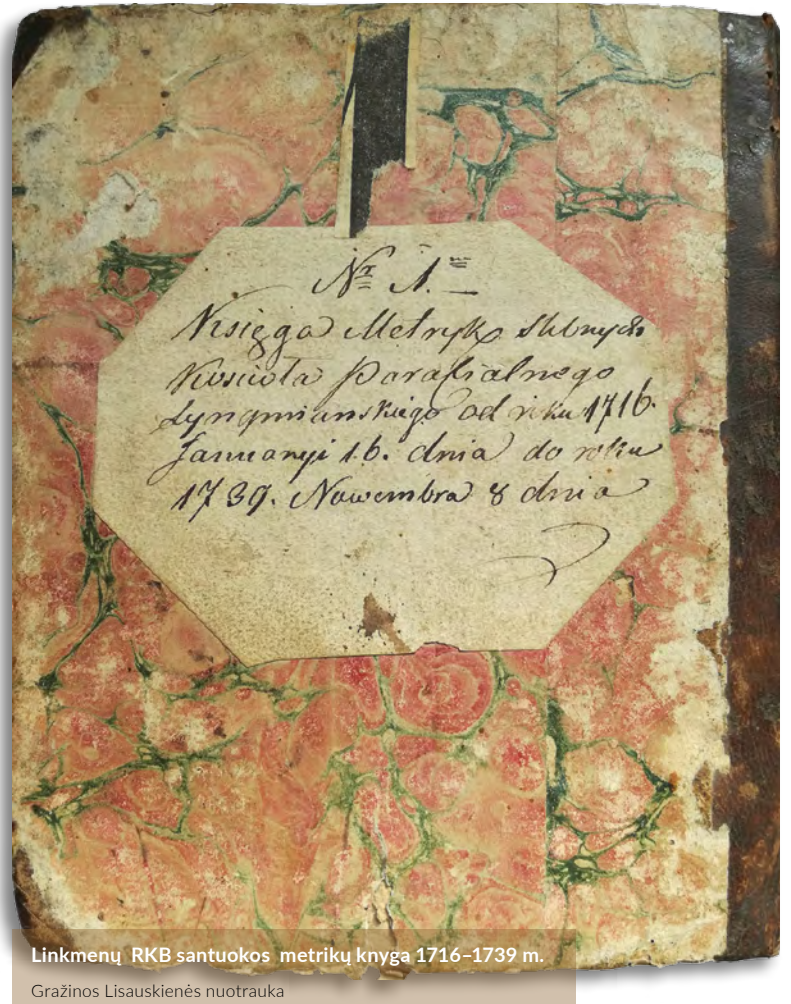 Nr 1.
Księga Metryk slubnych
Koscioła Parafialnego
Łyngmianskiego od roku 1716.
Januaryi 16. dnia do roku
1739. Nowembra 8 dnia
Linkmenų RKB santuokos metrikų knyga 1716–1739 m.
Gražinos Lisauskienės nuotrauka